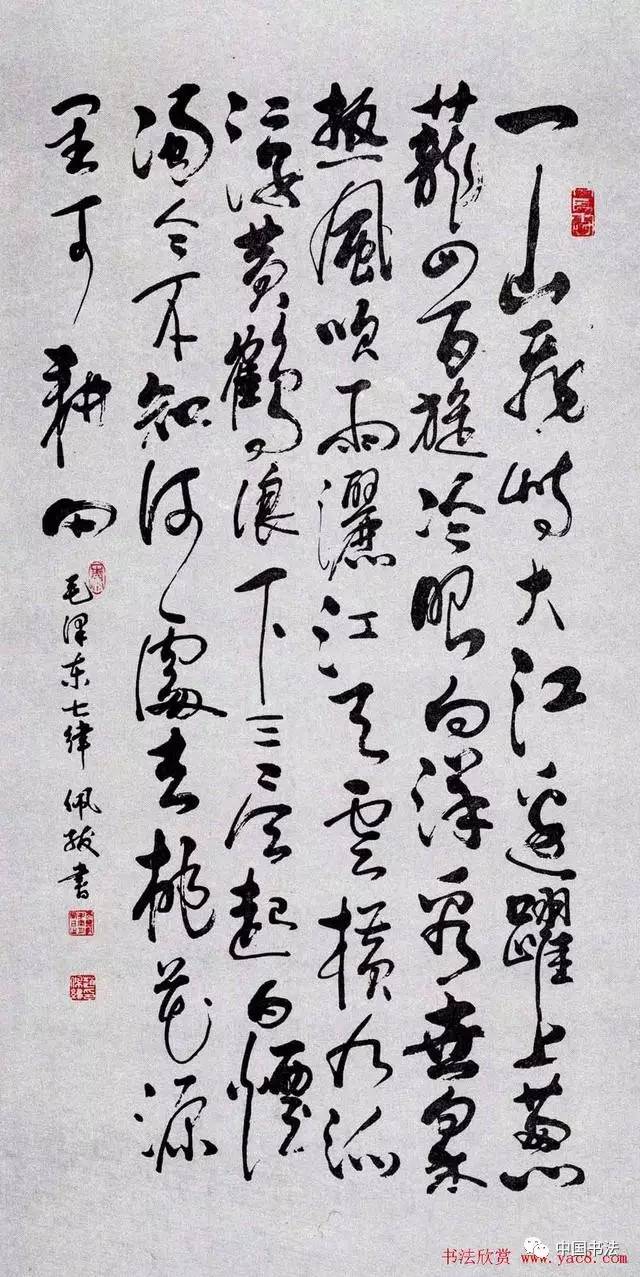 一山飛峙大江邊躍上葱
蘢四百旋冷眼向洋看世界
熱風吹雨灑江天雲横九派
浮黄鶴浪下三吴起白煙
陶令不知何處去桃花源
里可耕田
毛泽东七律 佩 書
中国书法
书法欣赏 www.yac8.com